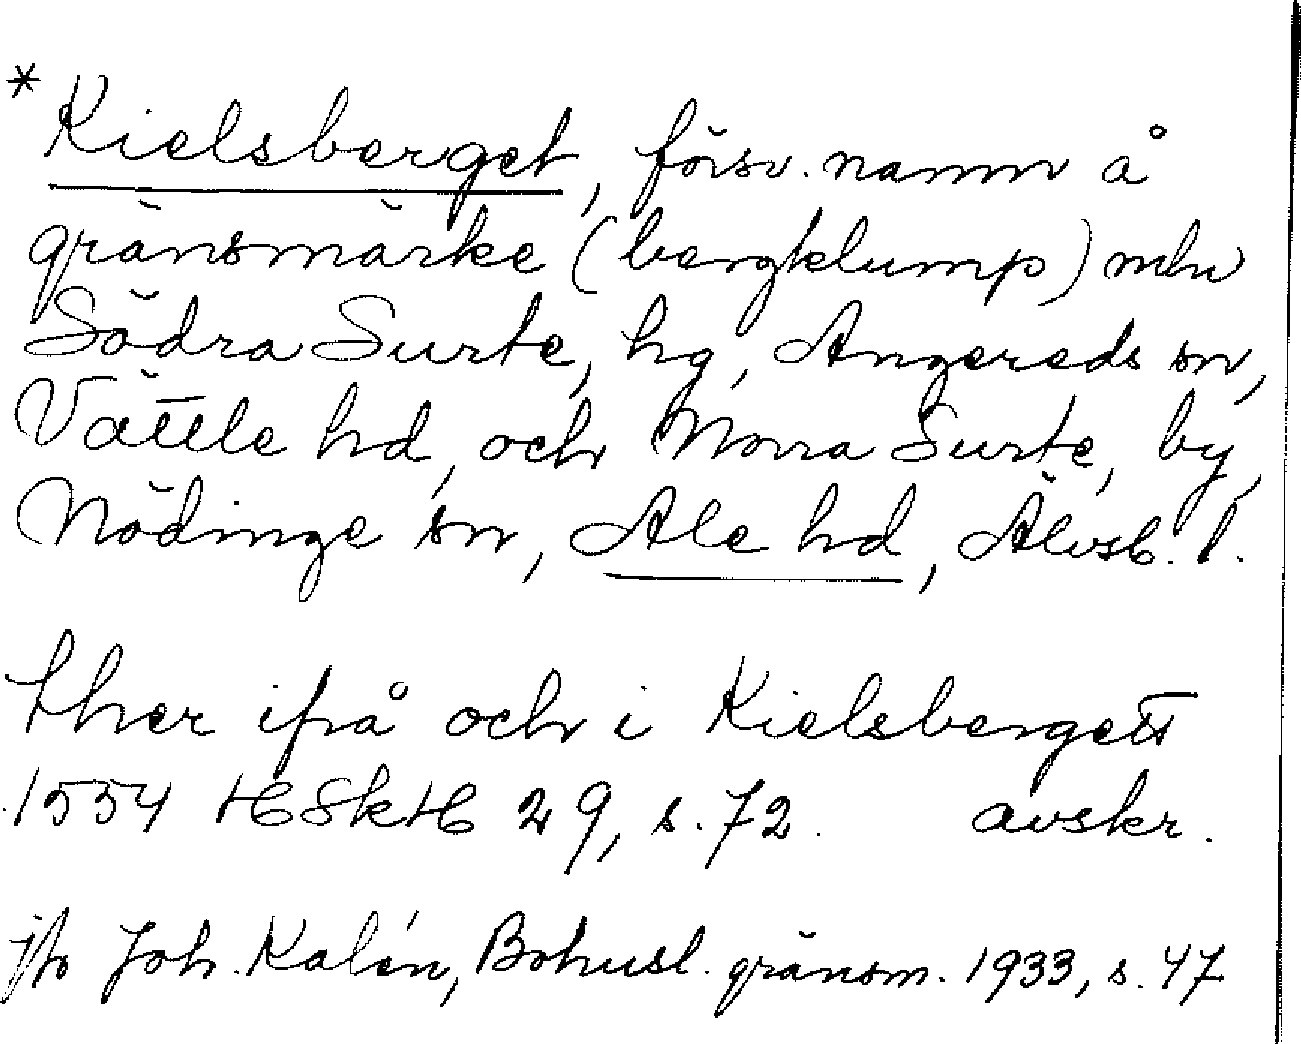 * Kielsberget, försv. namn å
gränsmärke (bergklump) mln
Södra Surte, hg, Angereds sn,
Vättle hd, och Norra Surte, by,
Nödinge sn, Ale hd, Älvsb. l.
ther ifrå och i Kielsbergett
1554 HSkH 29, s. 72. avskr.
jfr Joh. Kalén, Bohusl. gränsm. 1933, s. 47